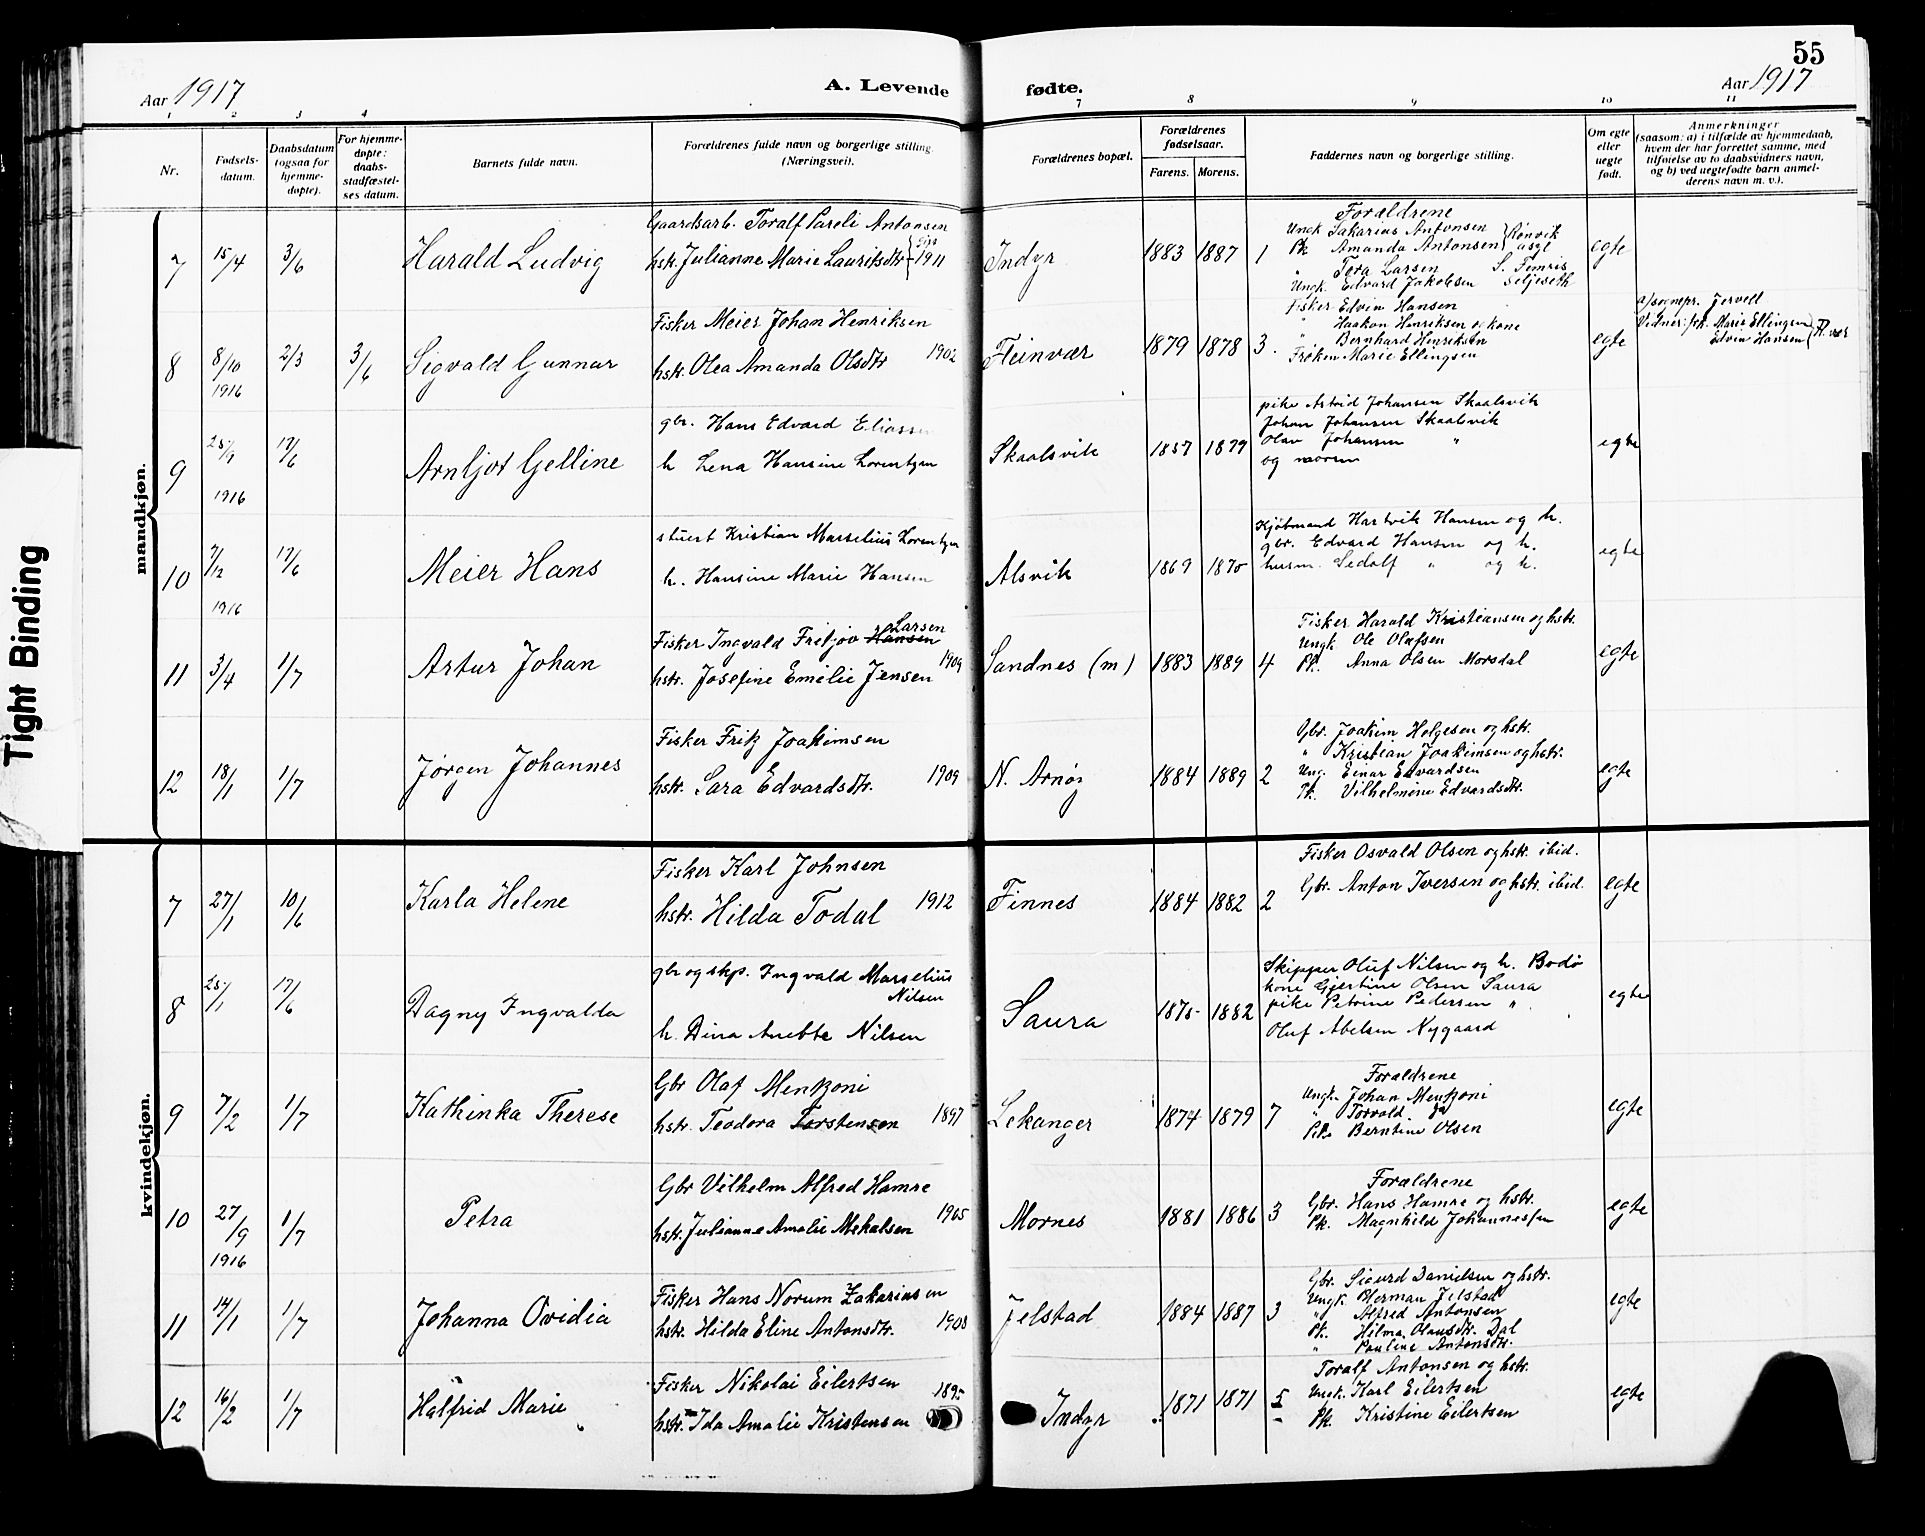 55
Aar 1917
A. Levende fødte.
Aar 1917
1 2 3 4 7 8 9 10 11
Nr.
Fødsels-
datum.
Daabsdatum
(ogsaa for
hjemme-
døpte).
For hjemme-
døpte:
daabs-
stadfæstel-
ses datum.
Barnets fulde navn.
Forældrenes fulde navn og borgerlige stilling.
(Næringsvei).
Forældrenes bopæl.
Forældrenes
fødselsaar.
Farens. Morens.
Faddernes navn og borgerlige stilling.
Om egte
eller
uegte
født.
Anmerkninger
(saasom: a) i tilfælde av hjemmedaab,
hvem der har forrettet samme, med
tilføielse av to daabsvidners navn,
og b) ved uegtefødte barn anmel-
derens navn m. v.).
Tight Binding
mandkjøn.
7 15/4 3/6 Harald Ludvig
Gaardsarb. Toralf Pareli Antonsen
hstr. Julianne Marie Lauritsdtr 1911
Indyr 1883 1887 1
Forældrene
Ungk Sakarius Antonsen
Pk Amanda Antonsen
" Tora Larsen
Ungk. Edvard Jakobsen Seljeseth
egte
8 8/10 1916 2/3 3/6 Sigvald Gunnar
Fisker Meier Johan Henriksen
hstr. Olea Amanda Olsdtr 1902
Fleinvær 1879 1878 3.
Fisker Edvin Hansen
" Haakon Henriksen og kone
" Bernhard Henriksen
Frøken Marie Ellingsen
egte
a/ sognepr. Jervell
Vidner: frk. Marie Ellingsen
Edvin Hansen Fl. vær
9 25/9 1916 17/6 Arnljot Gelline
gbr. Hans Edvard Eliassen
h Lena Hansine Lorentzen
Skaalsvik 1857 1879
pike Astrid Johansen Skaalsvik
Johan Johansen Skaalsvik
Olav Johansen "
og moren
egte
10 7/12 1916 17/6 Meier Hans
stuert Kristian Marselius Lorentzen
h. Hansine Marie Hansen
Alsvik 1869 1870
Kjøbmand Hartvik Hansen og h.
gbr. Edvard Hansen og h.
husm. Sedolf " og h.
egte
11 3/4 1/7 Artur Johan
Larsen
Fisker Ingvald Fritjov Hansen
hstr. Josefine Emelie Jensen 1909
Sandnes (m) 1883 1889 4
Fisker Harald Kristiansen og hstr.
Ungk. Ole Olafsen
Pk. Anna Olsen Morsdal
egte
12 18/1 1/7 Jørgen Johannes
Fisker Fritz Joakimsen
hstr. Sara Edvardsdtr. 1909
N. Arnøy 1884 1889 2
Gbr. Joakim Helgesen og hstr.
" Kristian Joakimsen og hstr.
Ung. Einar Edvardsen
Pk. Vilhelmine Edvardsdtr.
egte
kvindekjøn.
7 27/1 10/6 Karla Helene
Fisker Karl Johnsen
hstr. Hilda Todal 1912
Finnes 1884 1882 2
Fisker Osvald Olsen og hstr. ibid.
Gbr. Anton Iversen og hstr. ibid.
egte
8 25/1 17/6 Dagny Ingvalda
gbr og skp. Ingvald Marselius
Nilsen
h. Dina Anette Nilsen
Saura 1875 1882
Skipper Oluf Nilsen og h. Bodø
kone Gjertine Olsen Saura
pike Petrine Pedersen "
Oluf Abelsen Nygaard
egte
9 7/2 1/7 Kathinka Therese
Gbr Olaf Mentzoni
hstr. Teodora Torstensen 1897
Lekanger 1874 1879 7
Forældrene
Ungk. Johan Mentzoni
" Torvald do
Pike Berntine Olsen
egte
10 27/9 1916 1/7 Petra
Gbr Vilhelm Alfred Hamre
hstr. Julianne Amalie Mekalsen 1905
Mornes 1881 1886 3
Forældrene
Gbr. Hans Hamre og hstr.
Pk. Magnhild Johannessen
egte
11 14/1 1/7 Johanna Ovidia
Fisker Hans Norum Zakariassen
hstr. Hilda Eline Antonsdtr. 1908
Jelstad 1884 1887 3
Gbr. Sigurd Danielsen og hstr.
Ungk. Herman Jelstad
" Alfred Antonsen
Pk. Hilma Olausdtr. Dal
" Pauline Antonsdtr.
egte
12 16/2 1/7 Halfrid Marie
Fisker Nikolai Eilertsen
hstr. Ida Amalie Kristensen 1895
Indyr 1871 1871 5
Toralf Antonsen og hstr.
Ungk. Karl Eilertsen
Pk Kristine Eilertsen
egte